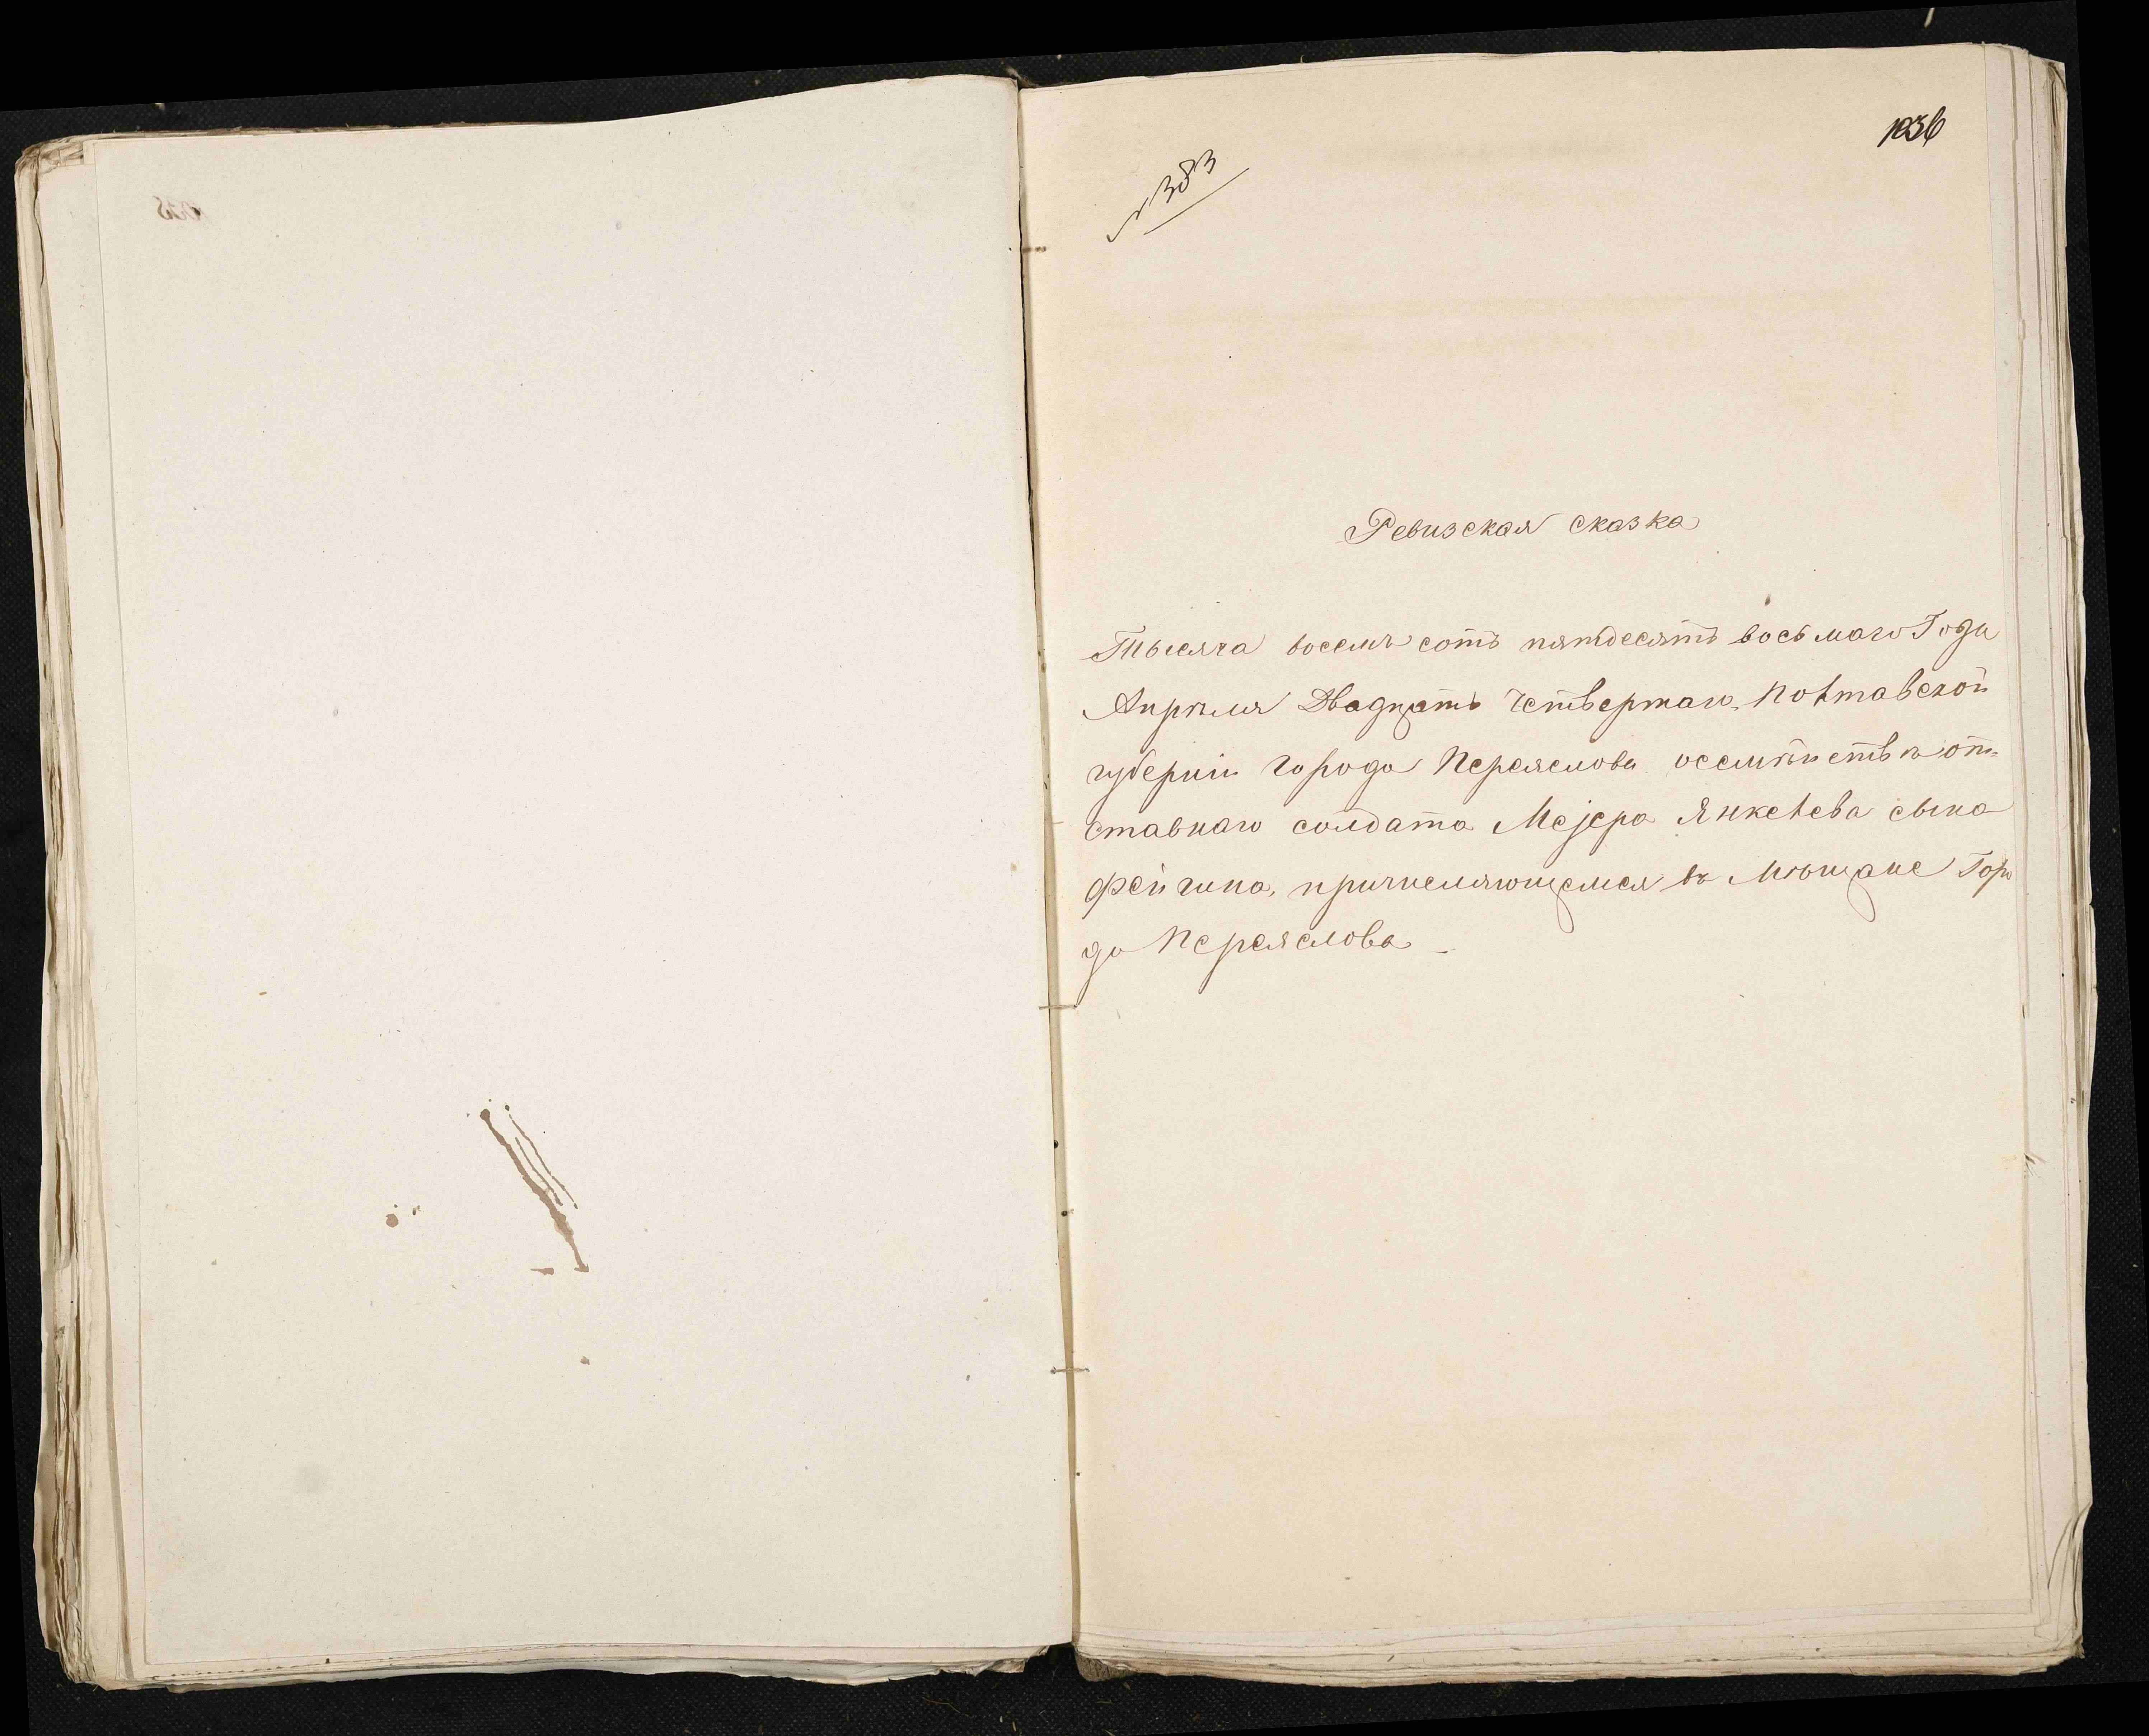 1036
№ 383
Ревизская сказка
Тысяча восемь сотъ пятдесятъ восьмаго Года
Апрѣля Двадцать Четвертаго, Полтавской
губерніи Города Переяслова о семѣйствѣ от=
ставнаго солдата Меjера Янкелева сына
Фейгина, причисляющемся въ Мѣщане Горо
да Переяслова